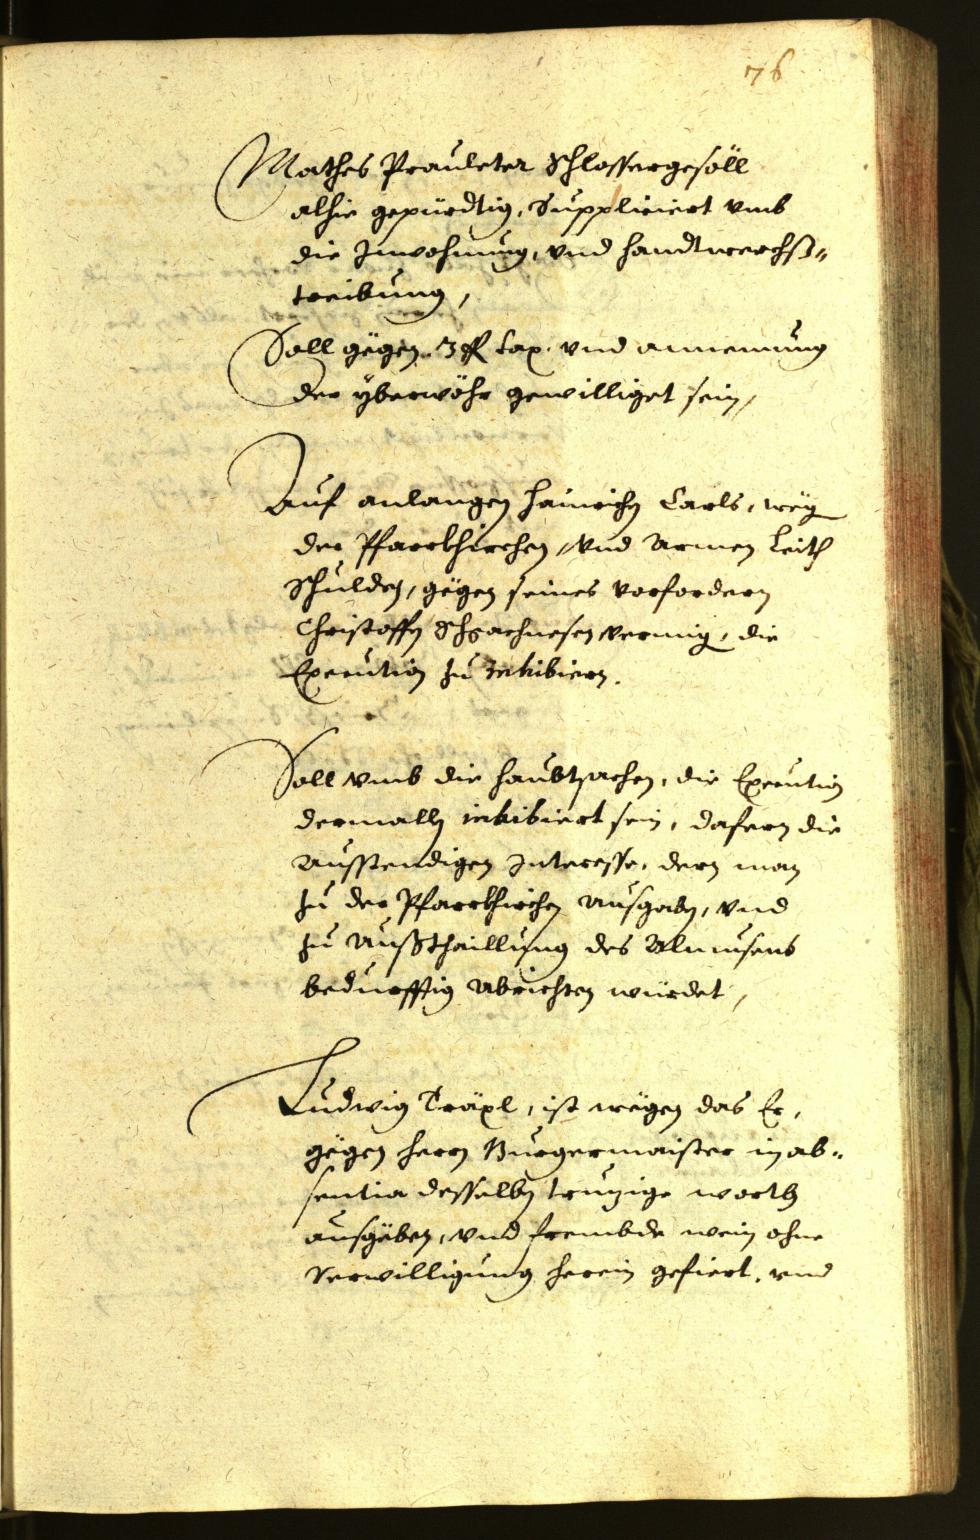 76
Mathes Prauleter Schlossergesöll
alhie gepürdtig, Suppliciert vmb
die Inwohnung, vnd handtwerchß„
treibung,
Soll gegen 3 fl tax vnd annemung
der yberwöhr gewilliget sein,
Auf anlangen Hainrichen Carls, weg
der Pfarrkhirchen, vnd Armen Leith
Schulden, gegen seines vorfordern
Christoffen die
Execution zu inhibiern.
Soll vmb die haubtsachen, die Execution
dermalln inhibiert sein, dafern die
Ausstendigen Interesse, dern man
zu der Pfarrkhirchen ausgaben, vnd
zu Außthaillung des Almusens
bedurfftig abrichten würdet,
Ludwig Träxl, ist wegen das Er,
gegen herrn Burgermaister in ab„
sentia desselben truzige worth
ausgeben, vnd frembde wein ohne
Verwilligung herein gefiert, vnd